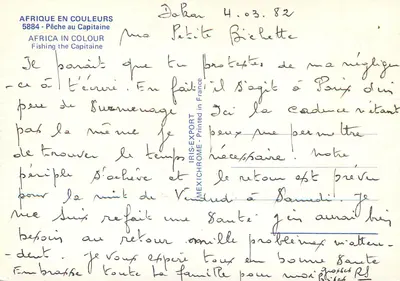 AFRIQUE EN COULEURS
5884 - Pêche au Capitaine
AFRICA IN COLOUR
Fishing the Capitaine
IRIS-EXPORT
MEXICHROME - Printed in France
Dakar 4.03.82
ma Petite Bichette
Il parait que tu protestes de ma négligen
-ce à t'écrire. En fait il s'agit à Paris d'un
peu de Surmenage Ici la cadence n'étant
pas la même je peux me permettre
de trouver le temps nécessaire. Notre
périple s'achève et le retour est prévu
pour la nuit de Vendredi à Samedi. Je
me suis refait une Santé j'en aurai bien
besoin au retour. mille problèmes m'atten-
-dent. Je vous espère tous en bonne Santé
Embrasse toute la famille pour moi grosses